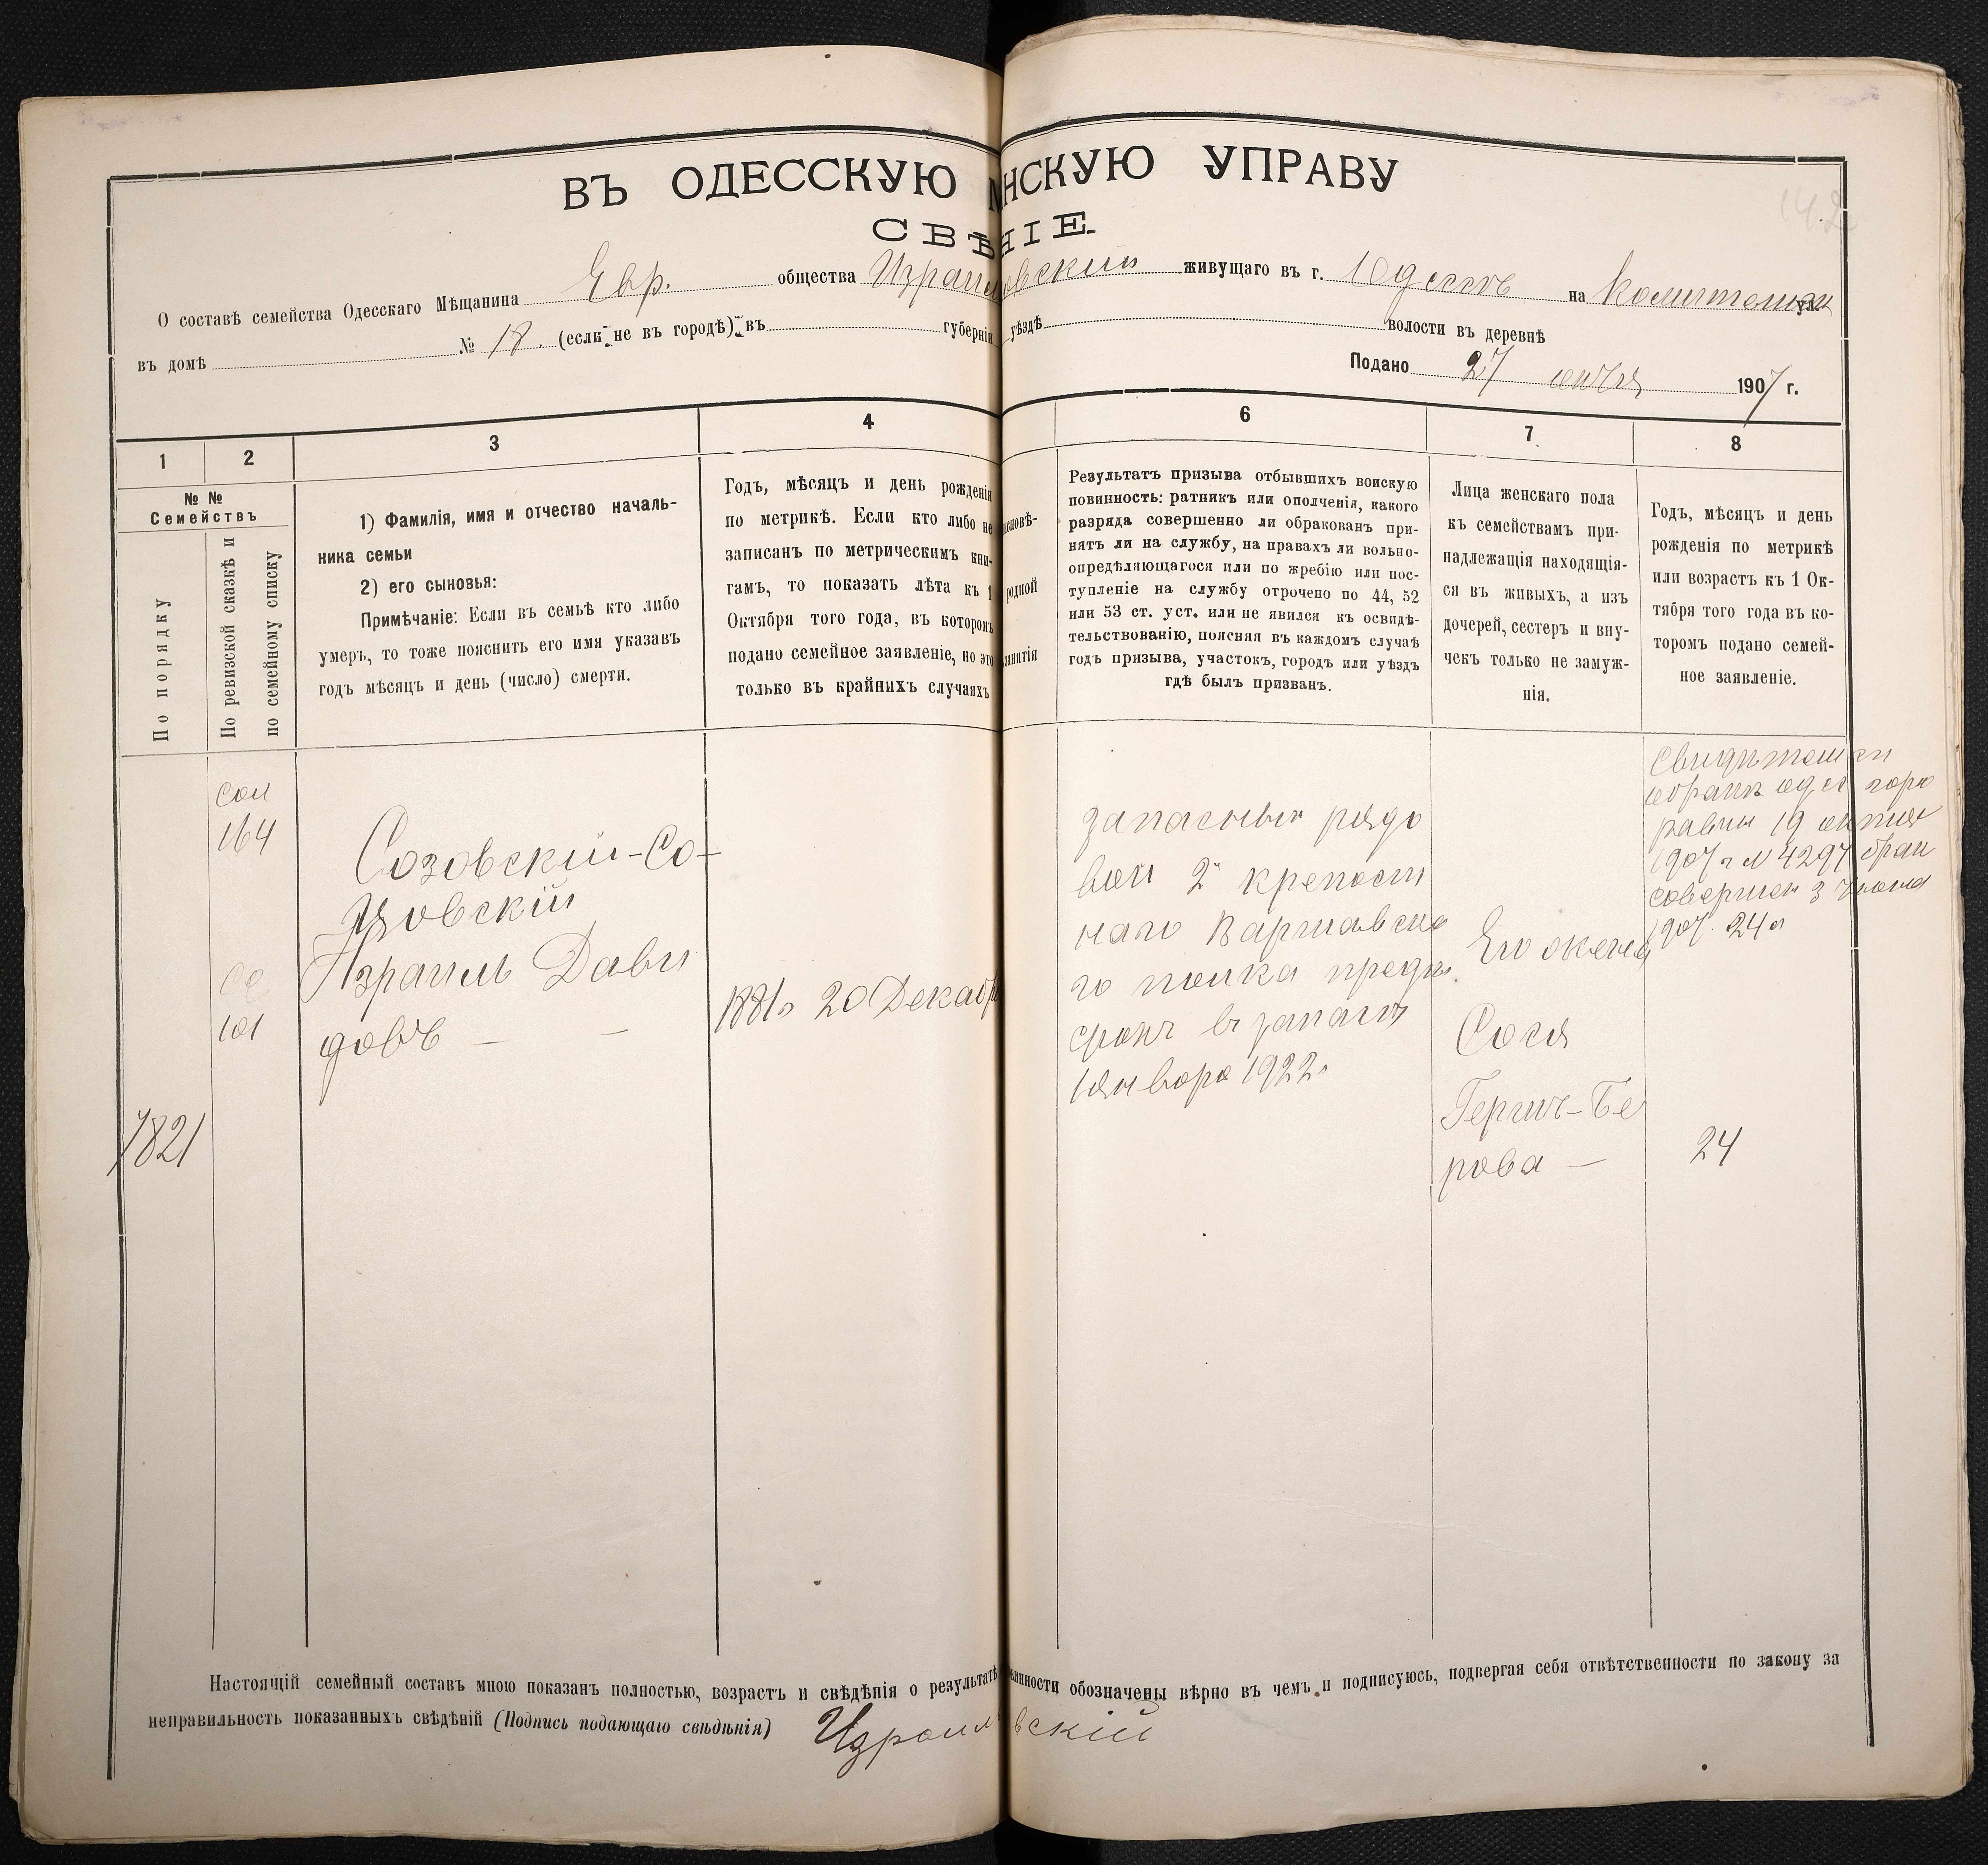 ВЪ ОДЕССКУЮ НСКУЮ УПРАВУ
СВѢ НІЕ
О составѣ семейства Одесскаго Мѣщанина Евр. общества Израил овский живущаго въ г. Одессѣ на ул.
въ домѣ № 18. (если не въ городѣ) въ губерніи уѣздѣ волости въ деревнѣ
Подано 27 1907 г.
1 2 3 4 6 7 8
№ №
Семействъ
По порядку
По ревизской сказкѣ и
по семейному списку
1) Фамилія, имя и отчество началь-
ника семьи
2) его сыновья:
Примѣчаніе: Если въ семьѣ кто либо
умеръ, то тоже пояснить его имя указавъ
годъ мѣсяцъ и день (число) смерти.
Годъ, мѣсяцъ и день рожденія
по метрикѣ. Если кто либо не
записанъ по метрическимъ кни-
гамъ, то показать лѣта къ 1
Октября того года, въ которомъ
подано семейное заявленіе, но это
только въ крайнихъ случаяхъ
исповѣ-
родной
занятія
Результатъ призыва отбывшихъ воискую
повинность: ратникъ или ополченія, какого
разряда совершенно ли обракованъ при-
нятъ ли на службу, на правахъ ли вольно-
опредѣляющагося или по жребію или пос-
тупленіе на службу отрочено по 44, 52
или 53 ст. уст. или не явился къ освидѣ-
тельствованію, поясняя въ каждомъ случаѣ
годъ призыва, участокъ, городъ или уѣздъ
гдѣ былъ призванъ.
Лица женскаго пола
къ семействамъ при-
надлежащія находящія-
ся въ живыхъ, а изъ
дочерей, сестеръ и вну-
чекъ только не замуж-
нія.
Годъ, мѣсяцъ и день
рожденія по метрикѣ
или возрастъ къ 1 Ок-
тября того года въ ко-
торомъ подано семей-
ное заявленіе.
7821
164
101
Созовскій-Со-
цовскій
Израиль Дави
довъ —
1881 г 20 Декабр
запасный рядо
вой 2 крепост
наго Варшавска
го полка
срокъ в запасѣ
1 января 1922 г
Его жена
Сося
Гершъ-Бе
рова —
19
1907 г N 4297
3
1907. 24 г
24
Настоящій семейный составъ мною показанъ полностью, возрастъ и свѣдѣнія о результатѣ винности обозначены вѣрно въ чемъ и подписуюсь, подвергая себя отвѣтственности по закону за
неправильность показанныхъ свѣдѣній (Подпись подающаго свѣдѣнія) Израил вскій